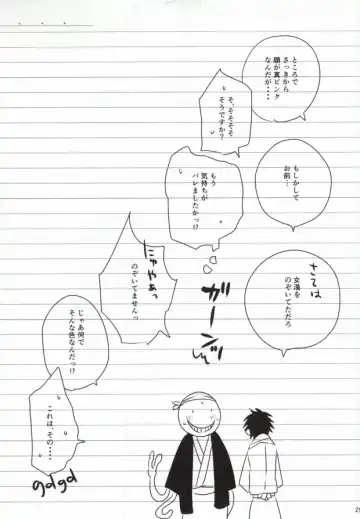 ところで
さっきから
顔が真ピンク
なんだが・・・・
そ、そそそそ
そうですか?
もしかして
お前…
もう
気持ちが
バレましたかっ!?
さては
女湯を
のぞいてただろ
ガーン
にゅやあっ
のぞいてませんっ
じゃあ何で
そんな色なんだっ!?
これは、その・・・・
gdgd